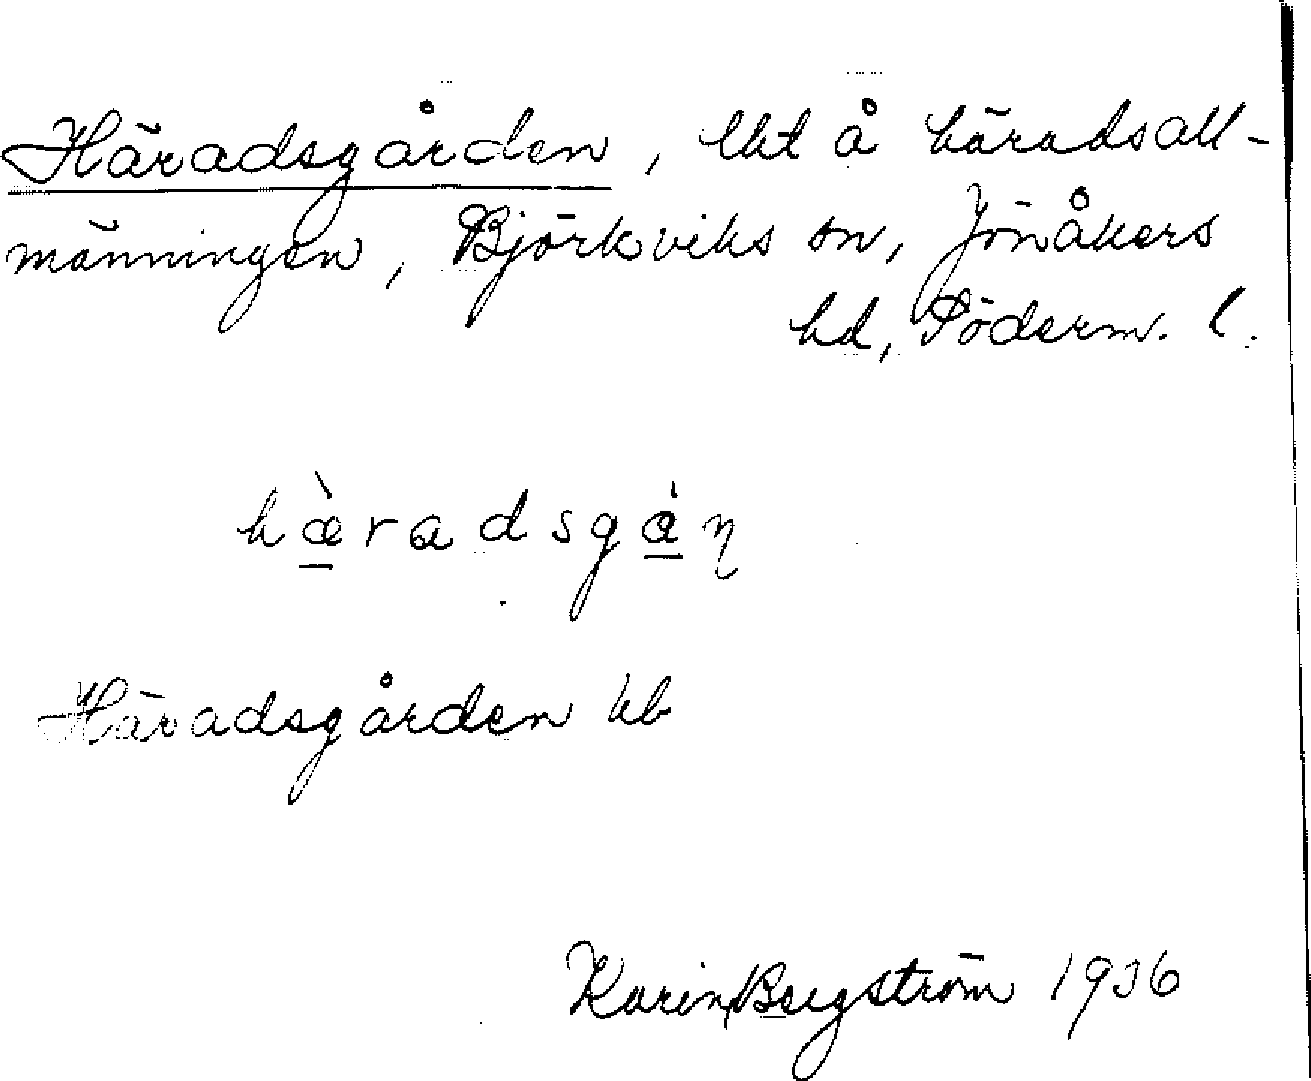 Häradsgården, lht å häradsall-
männingen, Björkviks sn, Jönåkers
hd, Söderm. l.
hæ̀radsgån
Häradsgården kb
Karin Bergström 1936